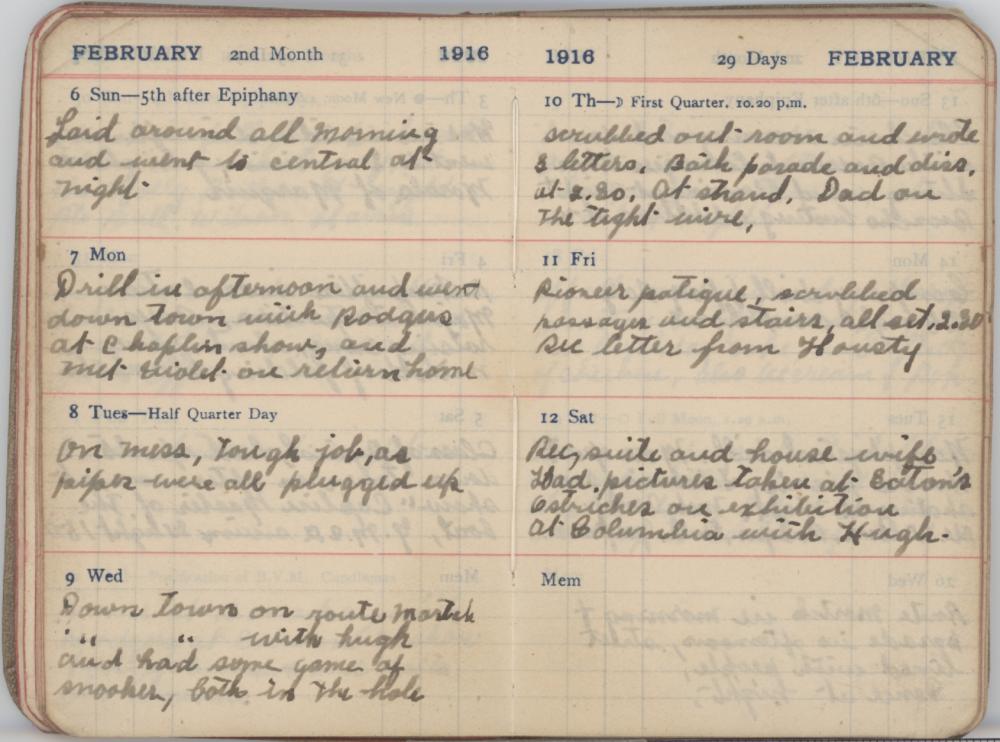 FEBRUARY 2nd Month 1916
6 Sun—5th after Epiphany
Laid around all morning
and went to central at
night.
7 Mon
Drill in afternoon and went
down town with Rodgers
at Chaplin show, and
met Violet on return home
8 Tues—Half Quarter Day
On mess, Tough job, as
pipes were all plugged up
9 Wed
Down Town on route march
" " with hugh
and had some game of
snooker, both in the hole
1916 29 Days FEBRUARY
10 Th—☽ First Quarter. 10.20 p.m.
scrubbed out room and wrote
3 letters. Bath parade and diss.
at 2.30. At strand. Dad on
The tight wire.
11 Fri
Pioneer fatigue, scrubbed
passages and stairs, all set, 2.30
Rec letter from Housty
12 Sat
Rec, suite and house wife
Had pictures taken at Eaton's
Ostriches on exhibition
at Columbia with Hugh.
Mem